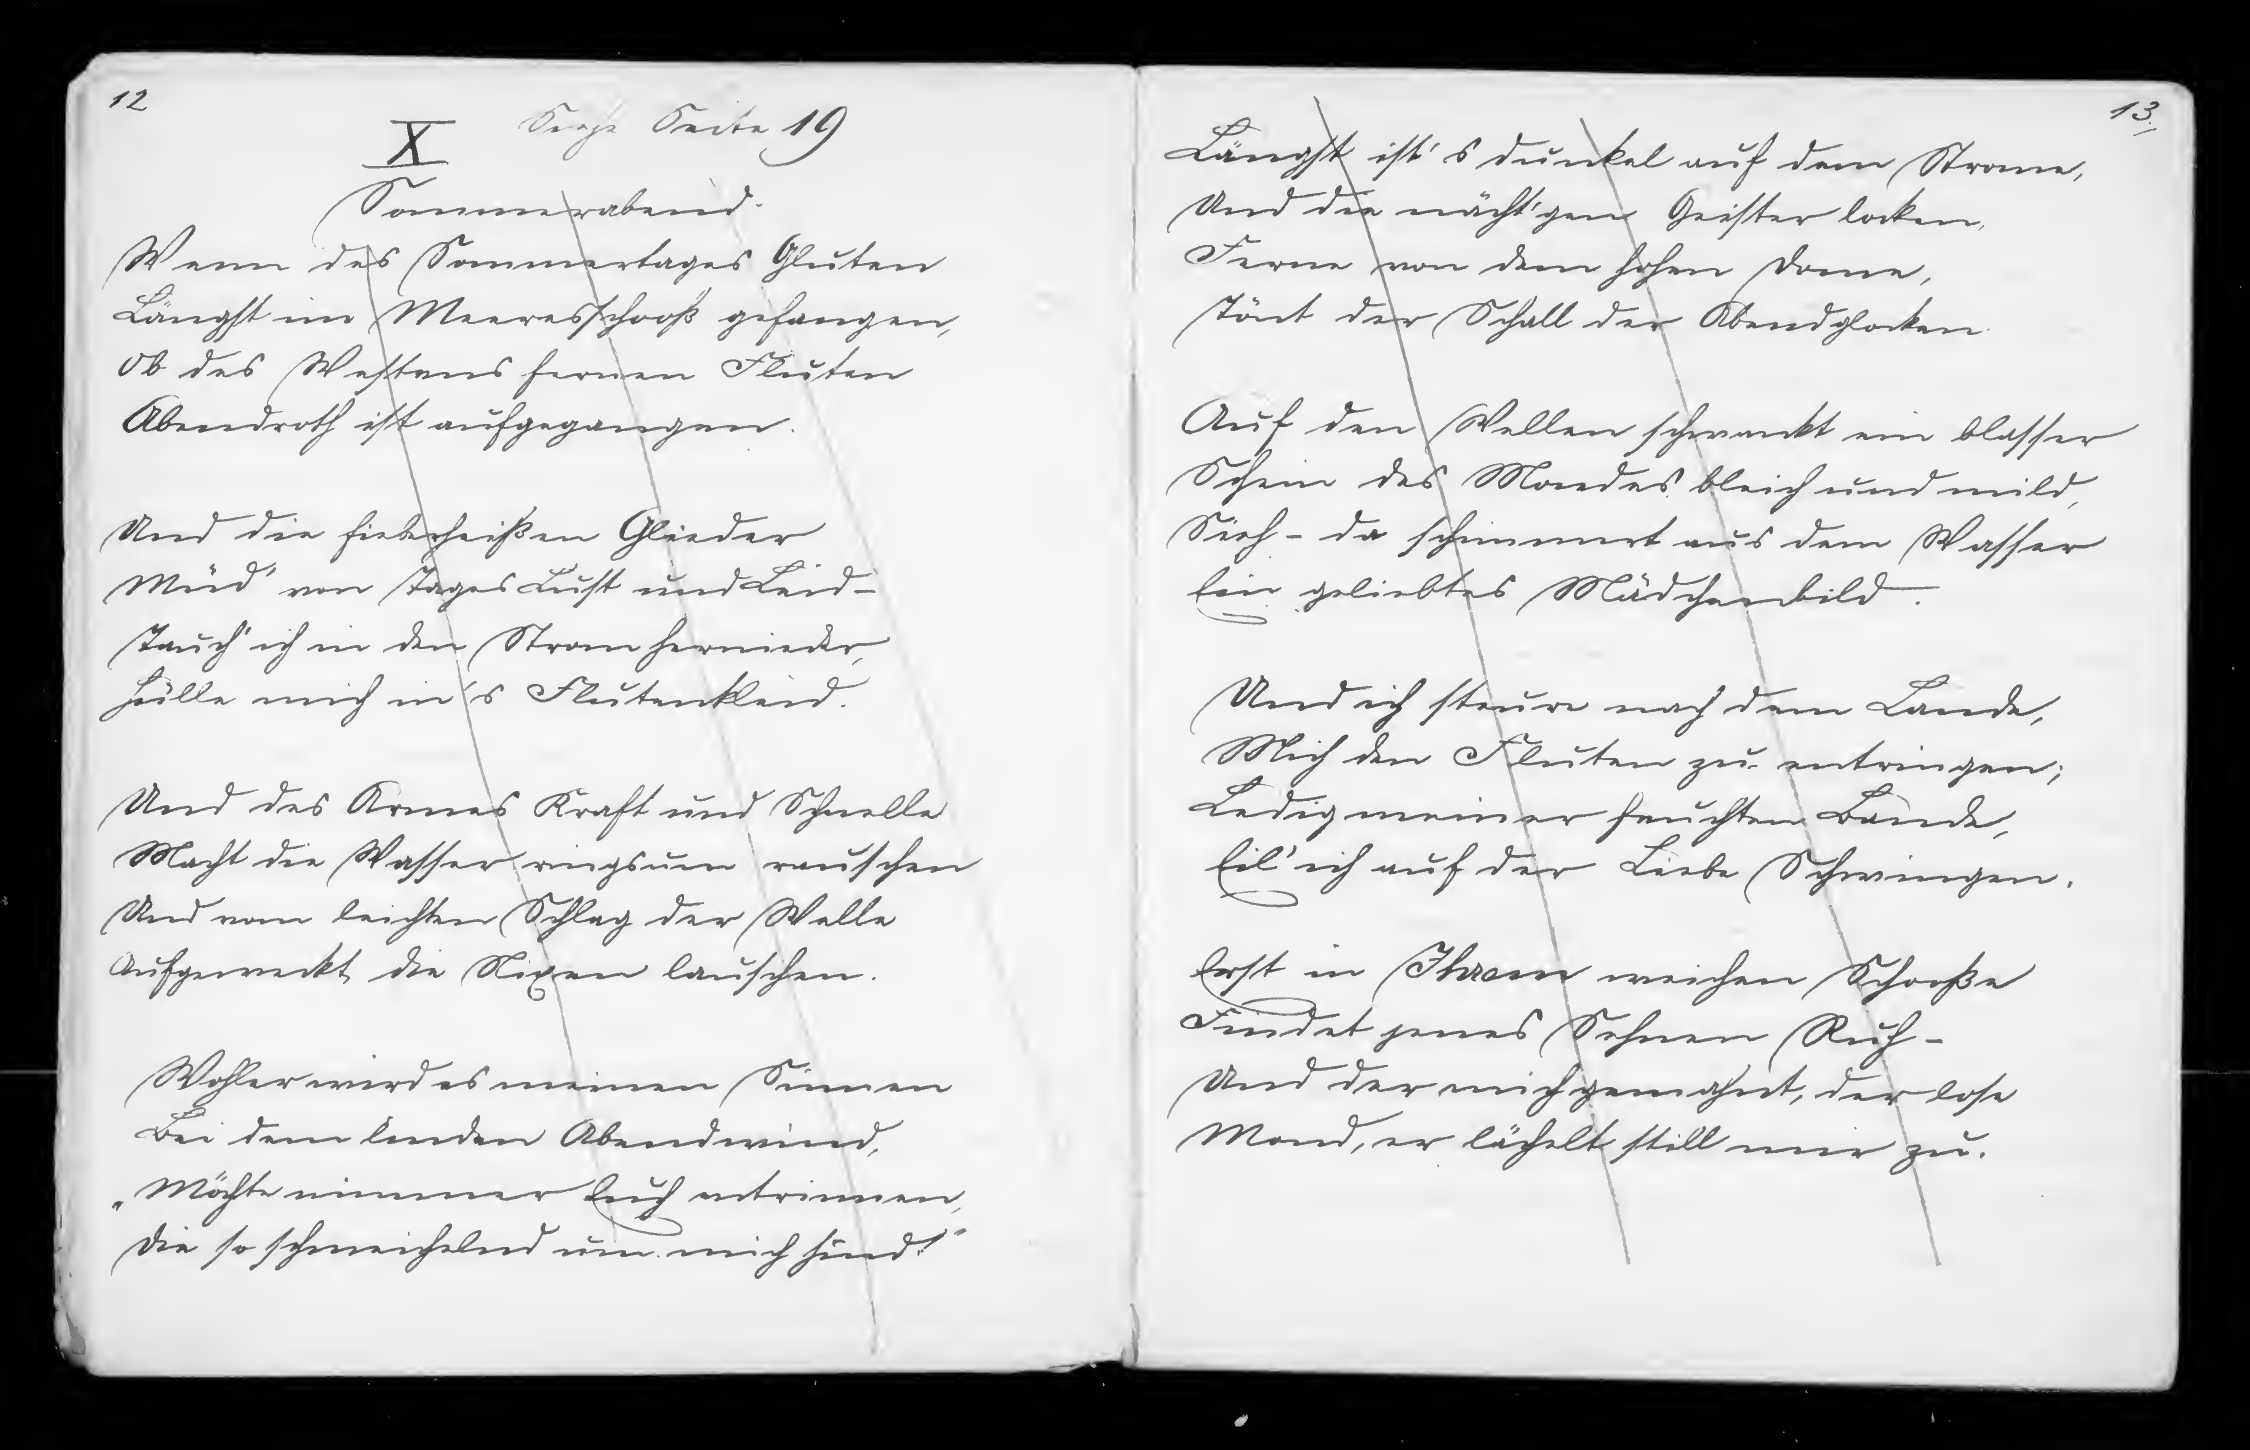 12
X Siehe Seite 19
Sommerabend.
Wenn des Sommertages Gluten
Längst im Meeresschooß gefangen,
Ob des Westens fernen Fluten
Abendroth ist aufgegangen.
Und die fieberheißen Glieder
Müd' von Tages Lust und Leid –
Tauch' ich in den Strom hernieder,
Hülle mich in's Flutenkleid.
Und des Armes Kraft und Schnelle
Macht die Wasser ringsum rauschen
Und vom leichten Schlag der Welle
Aufgeweckt die Nixen lauschen.
Wohler wird es meinen Sinnen
Bei dem linden Abendwind,
„Möchte nimmer Euch entrinnen,
Die so schmeichelnd um mich sind!“
13.
Längst ist's dunkel auf dem Strome,
Und die nächt'gen Geister locken,
Ferne von dem hohen Dome,
Tönt der Schall der Abendglocken.
Auf den Wellen schwankt ein blasser
Schein des Mondes bleich und mild,
Sieh – da schimmert aus dem Wasser
Ein geliebtes Mädchenbild.
Und ich steure nach dem Lande,
Mich den Fluten zu entringen;
Ledig meiner feuchten Bande,
Eil' ich auf der Liebe Schwingen.
Erst in Ihrem weichen Schooße
Findet jenes Sehnen Ruh –
Und der mich gemahnt, der lose
Mond, er lächelt still mir zu.